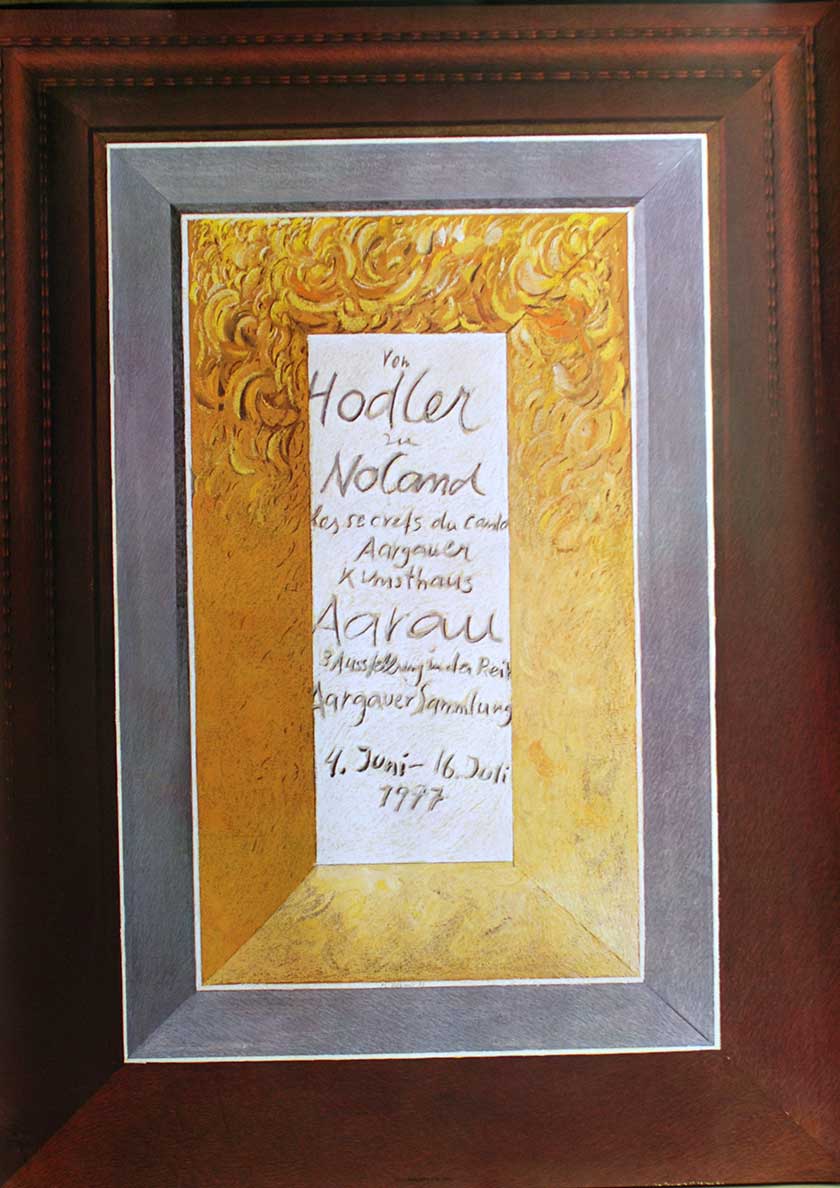 Von
Hodler
zu
Noland
Les secrets du cand
Aargauer
Kunsthaus
Aarau
3 Ausstellung in der Reih
Aargauer Sammlung
4. Juni - 16. Juli
1997